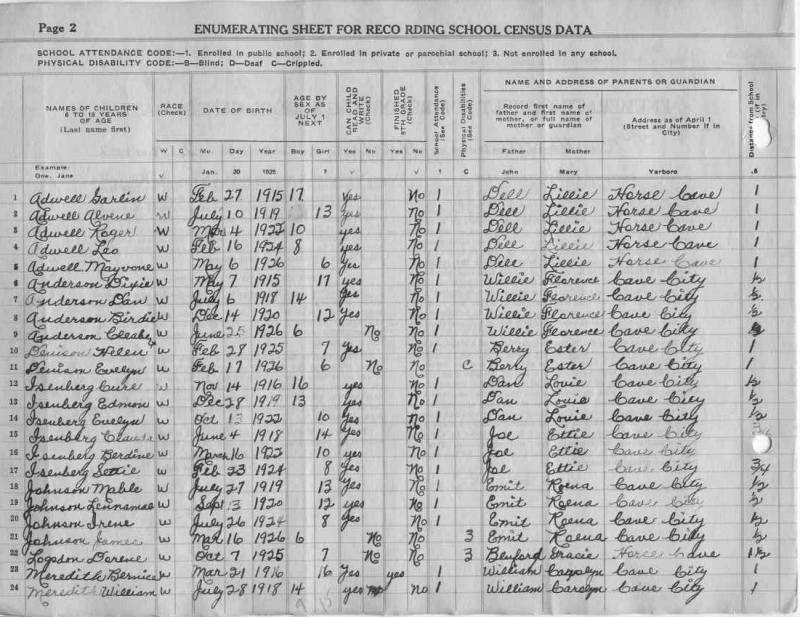 Page 2
ENUMERATING SHEET FOR RECORDING SCHOOL CENSUS DATA
SCHOOL ATTENDANCE CODE:—1. Enrolled in public school; 2. Enrolled in private or parochial school; 3. Not enrolled in any school.
PHYSICAL DISABILITY CODE:—B—Blind; D—Deaf C—Crippled.
NAMES OF CHILDREN 6 TO 18 YEARS OF AGE (Last name first)
RACE (Check)
DATE OF BIRTH
AGE BY SEX AS OF JULY 1 NEXT
CAN CHILD READ AND WRITE (Check)
FINISHED 8TH GRADE (Check)
School Attendance (See Code)
Physical Disabilities (See Code)
NAME AND ADDRESS OF PARENTS OR GUARDIAN
Record first name of father and first name of mother, or full name of mother or guardian
Address as of April 1 (Street and Number if in City)
Distance from School
W C Mo. Day Year Boy Girl Yes No Yes No Father Mother
Example:
One, Jane v Jan. 20 1925 7 v v 1 C John Mary Yarboro .5
1 Adwell Garlin W Feb 27 1915 17 yes No 1 Dell Lillie Horse Cave 1
2 Adwell Alvene W July 10 1919 13 yes No 1 Dell Lillie Horse Cave 1
3 Adwell Roger W Mar 4 1922 10 yes No 1 Dell Lillie Horse Cave 1
4 Adwell Leo W Feb 16 1924 8 yes No 1 Dell Lillie Horse Cave 1
5 Adwell Mayvone W May 6 1926 6 Yes No 1 Dell Lillie Horse Cave 1
6 Anderson Dixie W May 7 1915 17 yes No 1 Willie Florence Cave City 1/2
7 Anderson Dan W July 6 1918 14 Yes No 1 Willie Florence Cave City 1/2
8 Anderson Birdie W Dec 14 1920 12 Yes No 1 Willie Florence Cave City 1/2
9 Anderson W June 25 1926 6 No No 1 Willie Florence Cave City
10 Denison W Feb 28 1925 7 Yes No 1 Berry Ester Cave City 1
11 Denison Evelyn W Feb 17 1926 6 No No C Berry Ester Cave City 1
12 Isenberg W Nov 14 1916 16 yes No 1 Dan Louie Cave City 1/2
13 Isenberg Edmon W Dec 28 1919 13 yes No 1 Dan Louie Cave City 1/2
14 Isenberg Evelyn W Oct 13 1922 10 Yes No 1 Dan Louie Cave City 1/2
15 Isenberg W June 4 1918 14 Yes No 1 Joe Ettie Cave City
16 Isenberg Berdine W March 16 1922 10 yes No 1 Joe Ettie Cave City
17 Isenberg W Feb 23 1924 8 Yes No 1 Joe Ettie Cave City 3/4
18 Johnson Mable W July 27 1919 13 Yes No 1 Emit Roena Cave City 1/2
19 Johnson Lennamae W Sept 13 1920 12 yes No 1 Emit Roena Cave City 1/2
20 Johnson Irene W July 26 1924 8 Yes No 1 Emit Roena Cave City 1/2
21 Johnson James W Mar 16 1926 6 No No 3 Emit Roena Cave City 1/2
22 Logsdon Dorene W Oct 7 1925 7 No No 3 Beuford Gracie Horse Cave 1 1/2
23 Meredith Bernice W Mar 21 1916 16 Yes yes 1 William Carolyn Cave City 1
24 Meredith William W July 28 1918 14 yes No 1 William Carolyn Cave City 1